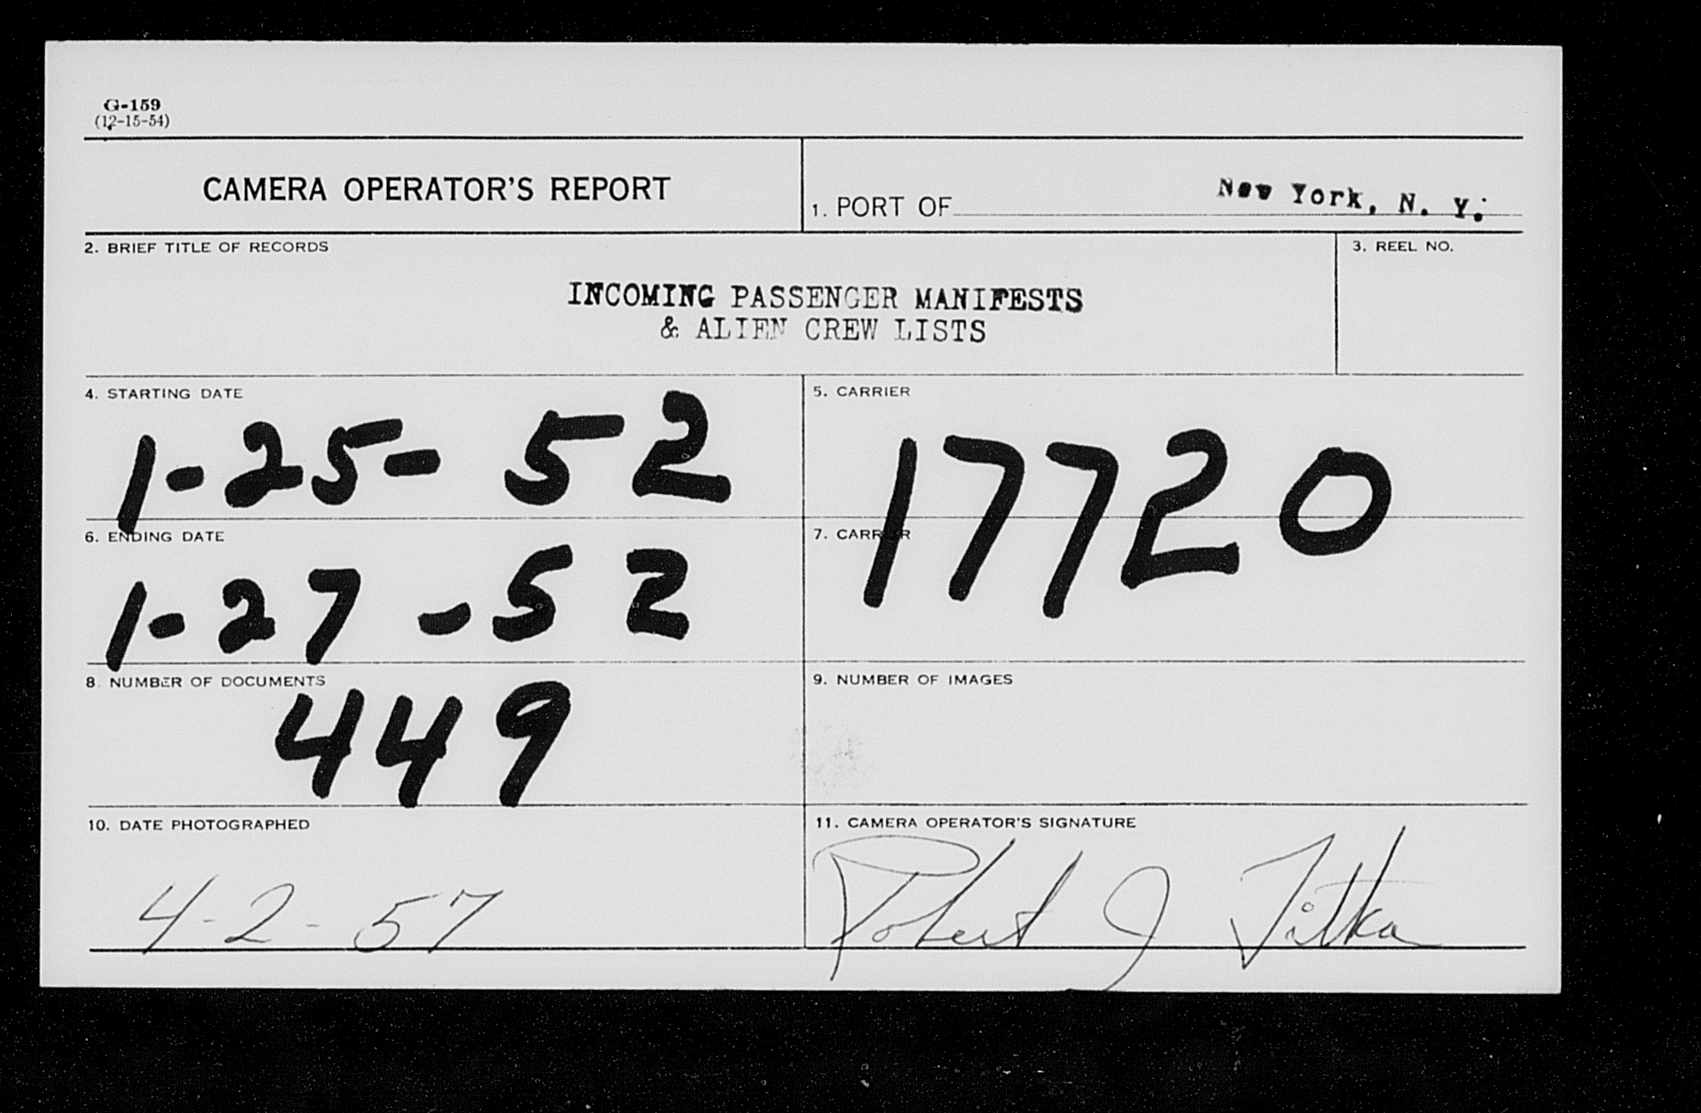 G-159
(12-15-54)
CAMERA OPERATOR'S REPORT
1. PORT OF New York, N. Y.
2. BRIEF TITLE OF RECORDS
3. REEL NO.
INCOMING PASSENGER MANIFESTS
& ALIEN CREW LISTS
4. STARTING DATE
1-25-52
5. CARRIER
17720
6. ENDING DATE
1-27-52
7. CARRIER
8. NUMBER OF DOCUMENTS
449
9. NUMBER OF IMAGES
10. DATE PHOTOGRAPHED
4-2-57
11. CAMERA OPERATOR'S SIGNATURE
Robert J